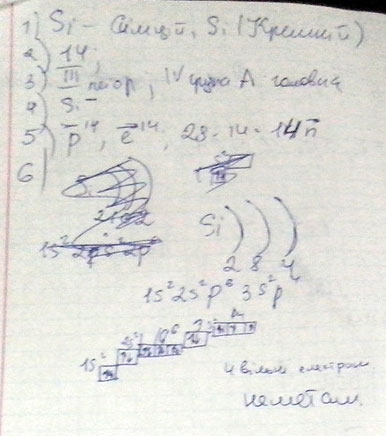 1) Si - Силіцій, Si (Кремній)
2) 14;
3) III період, IV група А головна
4) Si
5) p¹⁴, e¹⁴, 28-14=14n
6)
Si
2 8 4
1s² 2s² p⁶ 3s² p
1s²
4 вільні електрони
неметал.